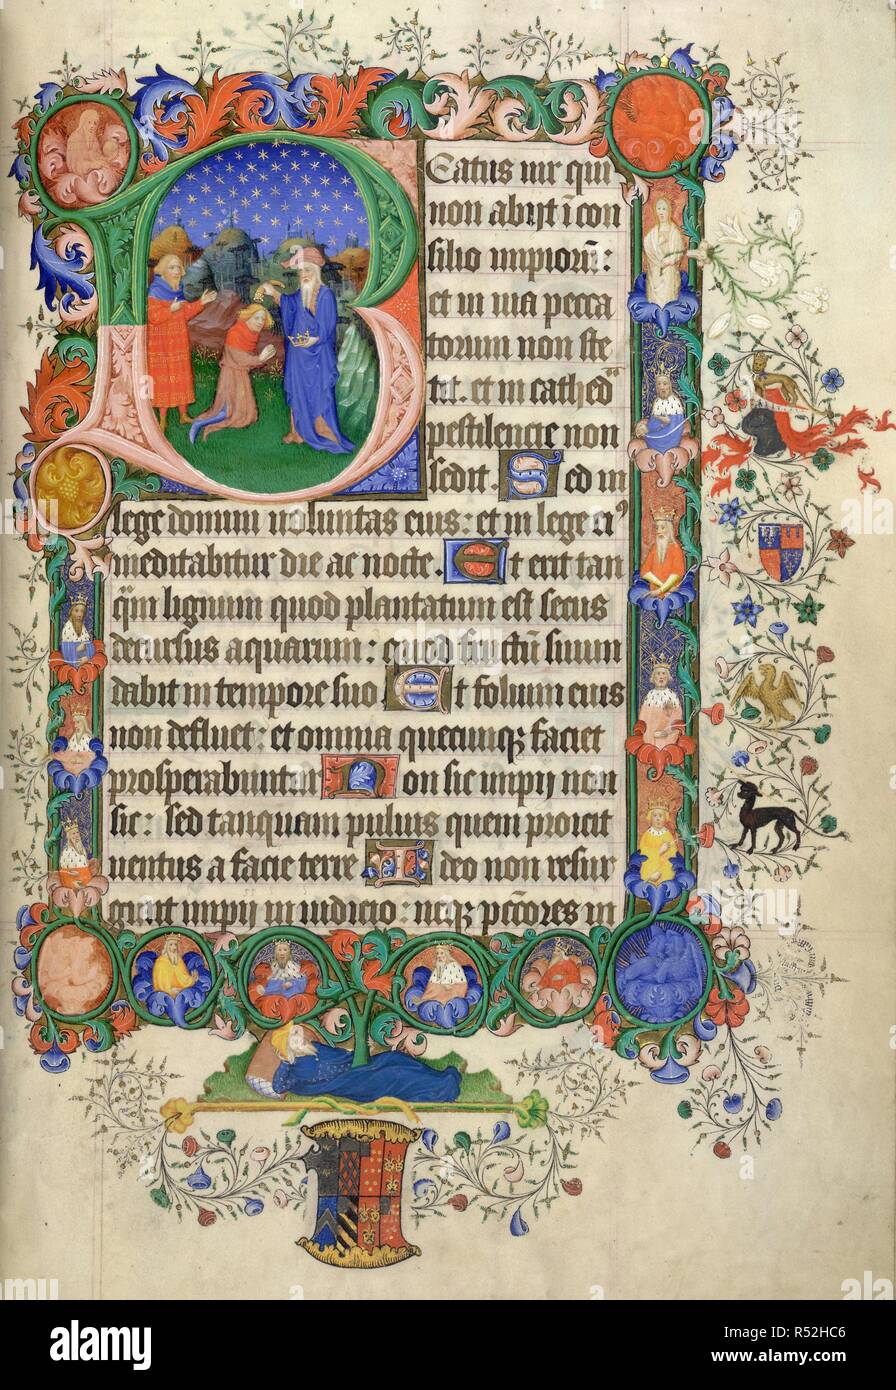 Beatus uir qui
non abijt i con
silio impioru̅:
et in uia pecca
torum non ste
tit. et in cathed
pestilencie non
sedit. Sed in
lege domini uoluntas eius: et in lege ei⁹
meditabitur die ac nocte. Et erit tan
q̅m lignum quod plantatum est secus
decursus aquarum: quod fructu̅ suum
dabit in tempore suo Et folium eius
non defluet: et omnia quecumqꝫ faciet
prosperabuntur Non sic impij non
sic: sed tanquam puluis quem proicit
uentus a facie terre Ideo non resur
gunt impij in iudicio: neqꝫ pcc̅ores in
alamy
Image ID: R52HC6
www.alamy.com